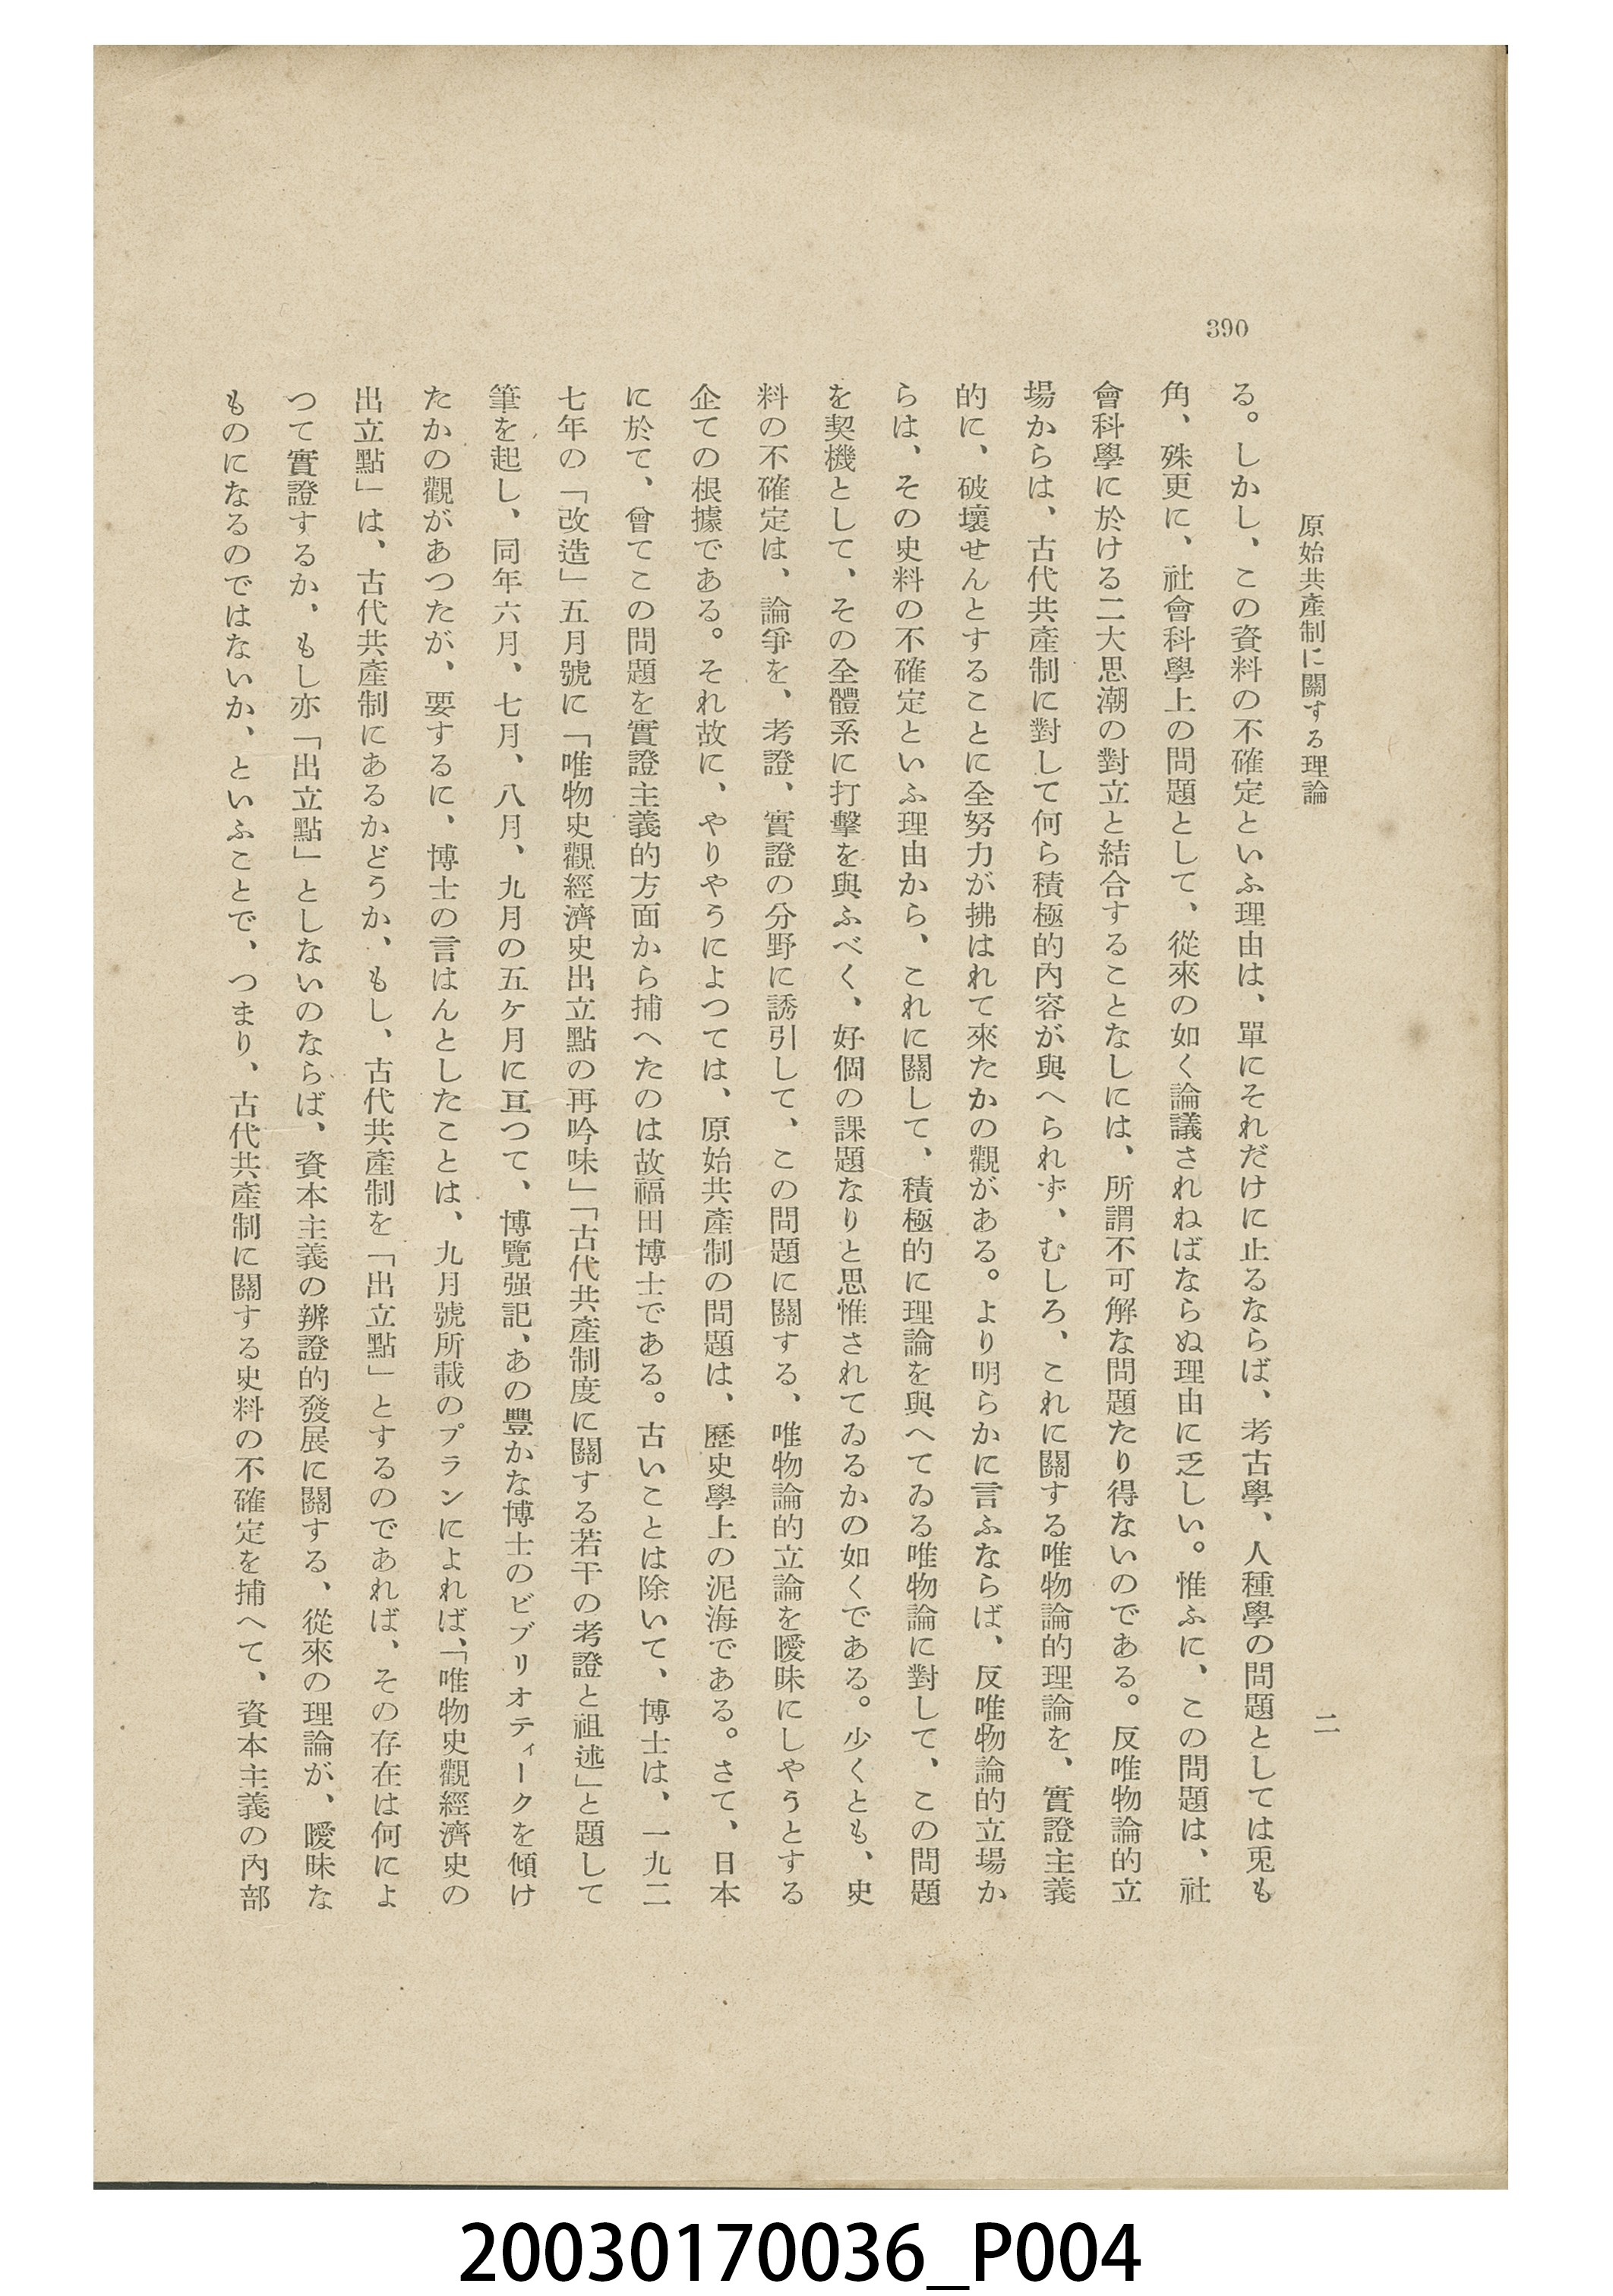 原始共產制に關する理論
二
390
る。しかし、この資料の不確定といふ理由は、單にそれだけに止るならば、考古學、人種學の問題としては兎も
角、殊更に、社會科學上の問題として、從來の如く論議されねばならぬ理由に乏しい。惟ふに、この問題は、社
會科學に於ける二大思潮の對立と結合することなしには、所謂不可解な問題たり得ないのである。反唯物論的立
場からは、古代共產制に對して何ら積極的內容が與へられず、むしろ、これに關する唯物論的理論を、實證主義
的に、破壞せんとすることに全努力が拂はれて來たかの觀がある。より明らかに言ふならば、反唯物論的立場か
らは、その史料の不確定といふ理由から、これに關して、積極的に理論を與へてゐる唯物論に對して、この問題
を契機として、その全體系に打擊を與ふべく、好個の課題なりと思惟されてゐるかの如くである。少くとも、史
料の不確定は、論爭を、考證、實證の分野に誘引して、この問題に關する、唯物論的立論を曖昧にしやうとする
企ての根據である。それ故に、やりやうによつては、原始共產制の問題は、歷史學上の泥海である。さて、日本
に於て、曾てこの問題を實證主義的方面から捕へたのは故福田博士である。古いことは除いて、博士は、一九二
七年の「改造」五月號に「唯物史觀經濟史出立點の再吟味」「古代共產制度に關する若干の考證と祖述」と題して
筆を起し、同年六月、七月、八月、九月の五ケ月に亙つて、博覽强記、あの豐かな博士のビブリオティークを傾け
たかの觀があつたが、要するに、博士の言はんとしたことは、九月號所載のプランによれば、「唯物史觀經濟史の
出立點」は、古代共產制にあるかどうか、もし、古代共產制を「出立點」とするのであれば、その存在は何によ
つて實證するか、もし亦「出立點」としないのならば、資本主義の辨證的發展に關する、從來の理論が、曖昧な
ものになるのではないか、といふことで、つまり、古代共產制に關する史料の不確定を捕へて、資本主義の內部
20030170036_P004